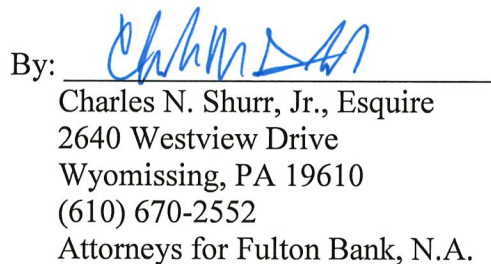 By:
Charles N. Shurr, Jr., Esquire
2640 Westview Drive
Wyomissing, PA 19610
(610) 670-2552
Attorneys for Fulton Bank, N.A.